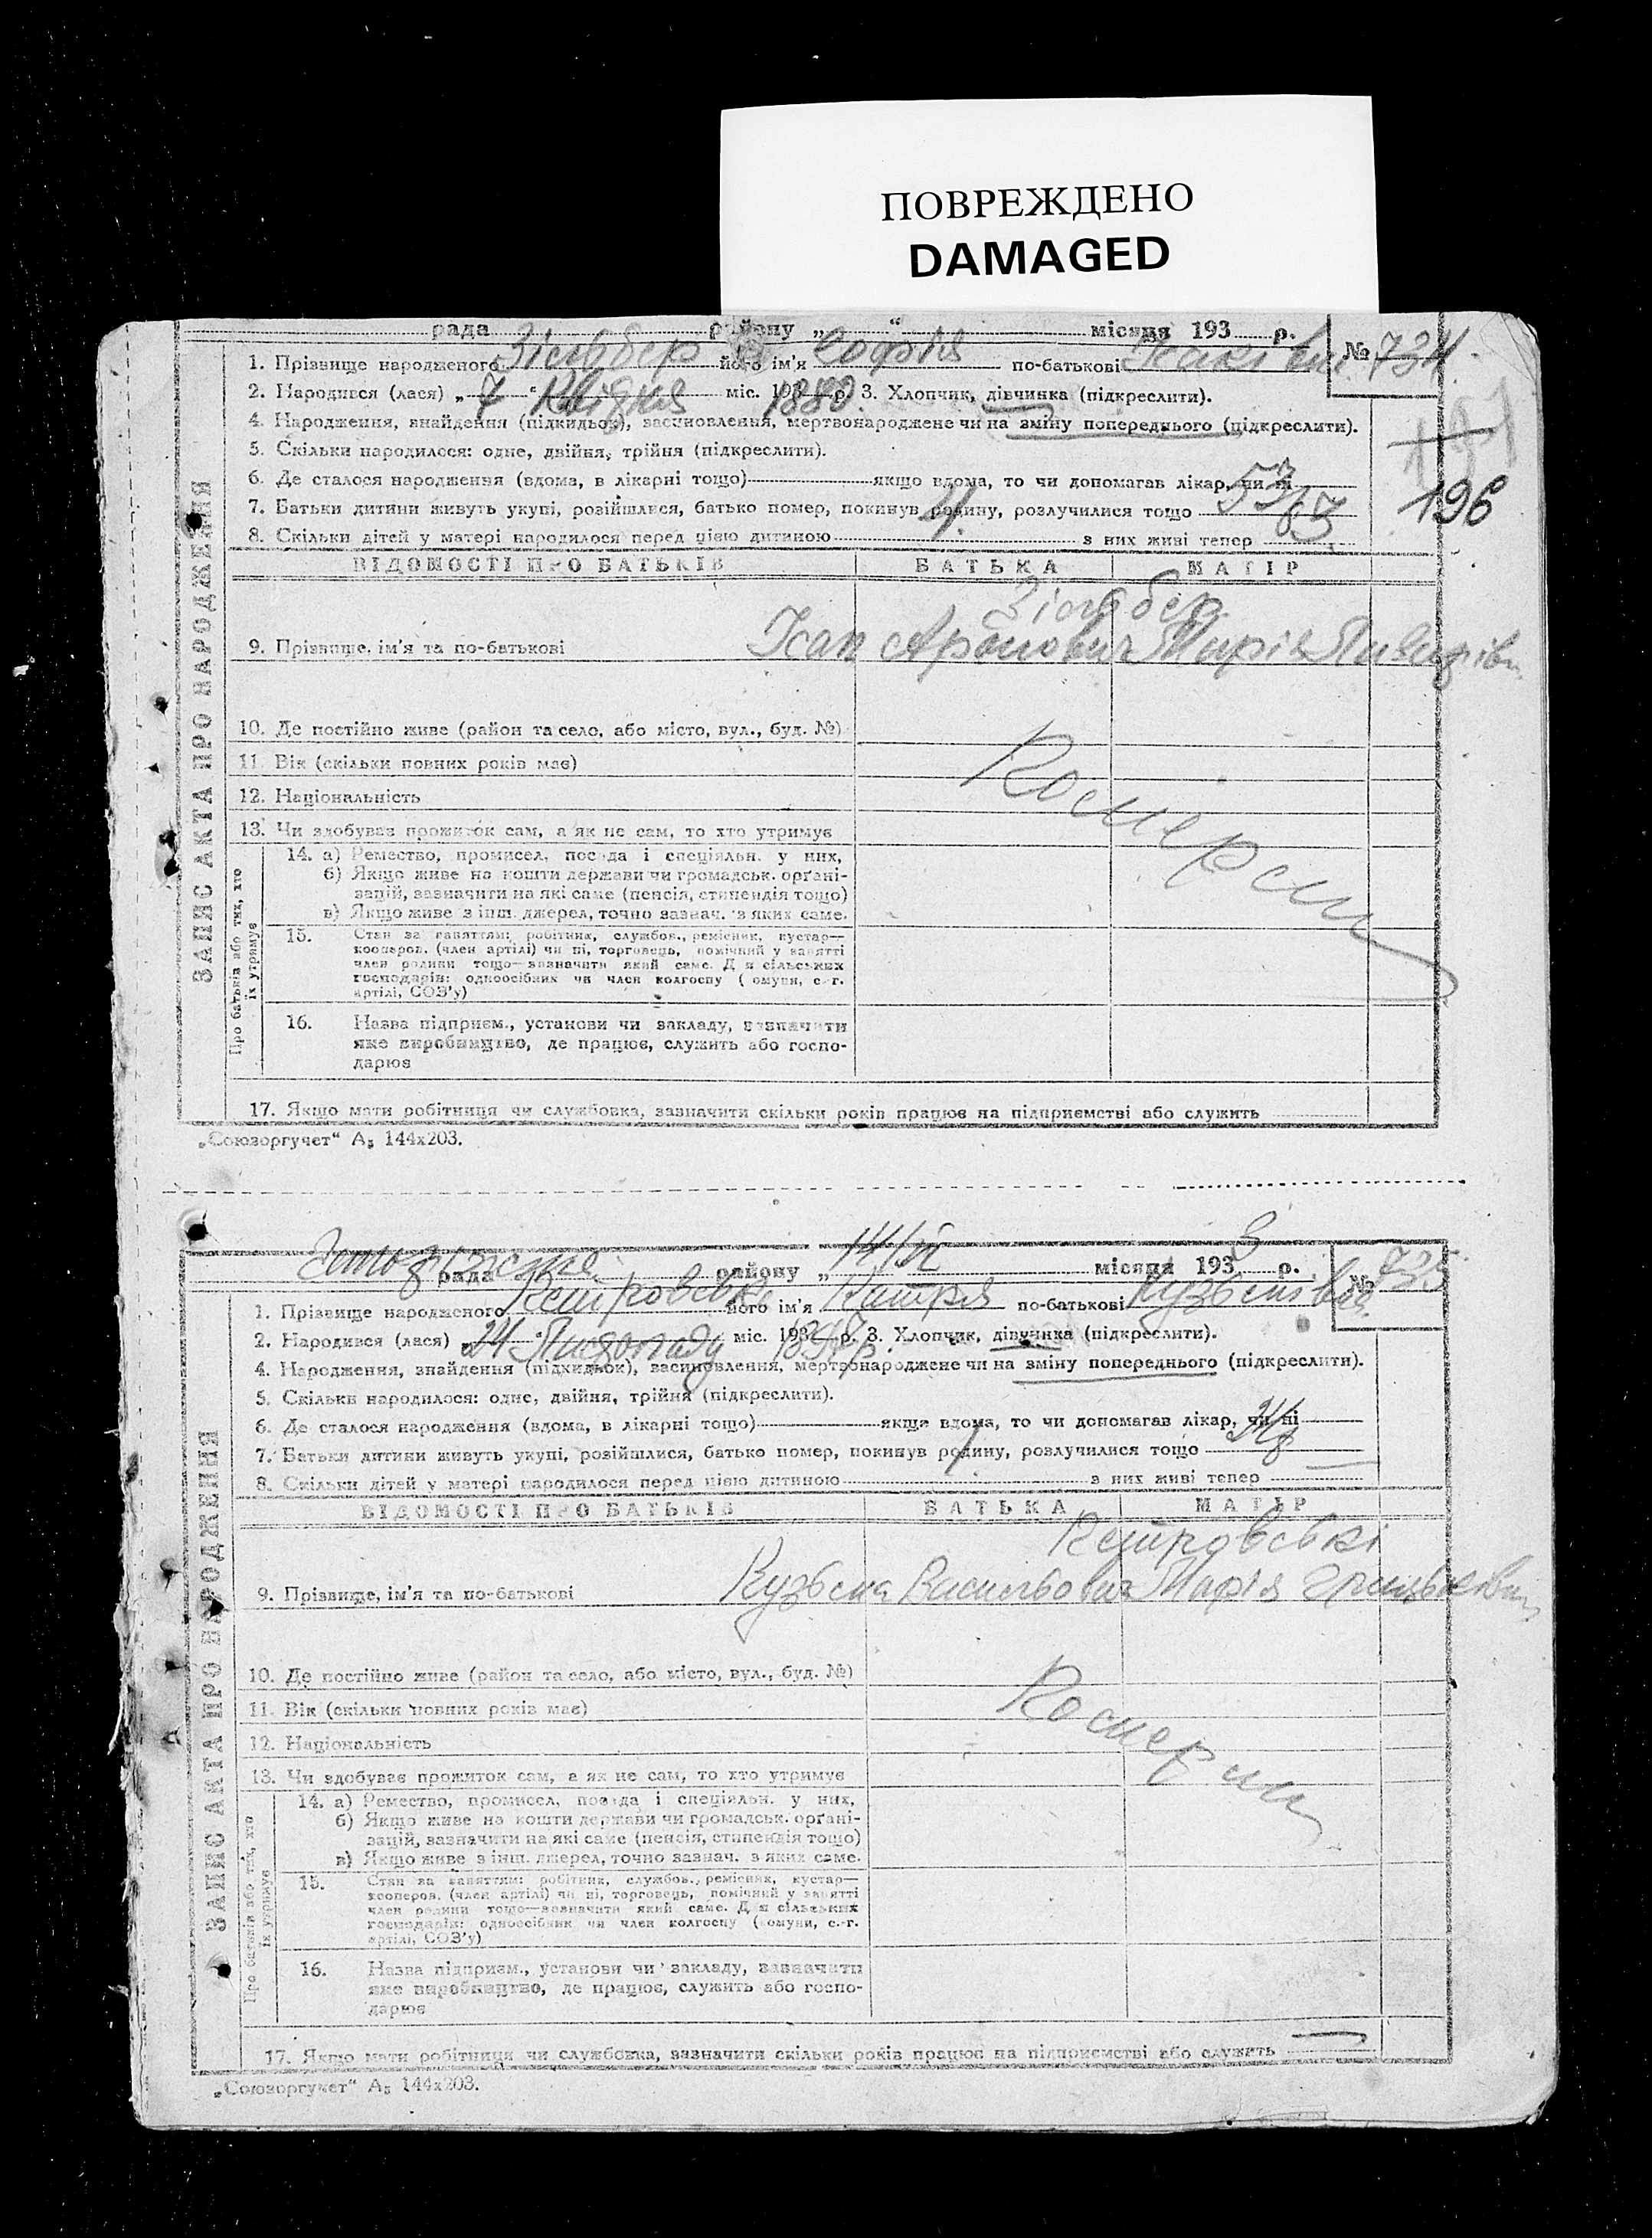 ПОВРЕЖДЕНО
DAMAGED
рада району „ “ місяця 193 р.
№ 734.
1. Прізвище народженого Зільбер його ім'я Софія по-батькові Ісаківна
2. Народився (лася) „7“ Квітня міс. 193 1880 р. 3. Хлопчик, дівчинка (підкреслити).
4. Народження, знайдення (підкидьок), всиновлення, мертвонароджене чи на зміну попереднього (підкреслити).
5. Скільки народилося: одне, двійня, трійня (підкреслити).
6. Де сталося народження (вдома, в лікарні тощо) якщо вдома, то чи допомагав лікар, чи ні 53
196
7. Батьки дитини живуть укупі, розійшлися, батько помер, покинув родину, розлучилися тощо
8. Скільки дітей у матері народилося перед цією дитиною з них живі тепер
ЗАПИС АКТА ПРО НАРОДЖЕННЯ
ВІДОМОСТІ ПРО БАТЬКІВ БАТЬКА МАТІР
Зільбер
9. Прізвище, ім'я та по-батькові Ісак Аронович Марія
10. Де постійно живе (район та село, або місто, вул., буд. №)
11. Вік (скільки повних років має)
12. Національність
13. Чи здобуває прожиток сам, а як не сам, то хто утримує
Про батьків або тих, хто їх утримує
14. а) Ремество, промисел, посада і спеціяльн. у них,
б) Якщо живе на кошти держави чи громадськ. орґані-
зацій, зазначити на які саме (пенсія, стипендія тощо)
в) Якщо живе з інш. джерел, точно зазнач. з яких саме.
15. Стан за заняттям: робітник, службов., ремісник, кустар—
кооперов. (член артілі) чи ні, торговець, помічний у занятті
член родини тощо—зазначити який саме. Для сільських
господарів: одноосібник чи член колгоспу (комуни, с.-г.
артілі, СОЗ'у)
16. Назва підприєм., установи чи закладу, зазначити
яке виробництво, де працює, служить або госпо-
дарює
17. Якщо мати робітниця чи службовка, зазначити скільки років працює на підприємстві або служить
„Союзоргучет“ А₅ 144х203.
рада району „ 14/IX місяця 193 3 р.
№ 735
1. Прізвище народженого його ім'я по-батькові Кузьмівна
2. Народився (лася) „24“ Листопаду міс. 193 р. 3. Хлопчик, дівчинка (підкреслити).
4. Народження, знайдення (підкидьок), всиновлення, мертвонароджене чи на зміну попереднього (підкреслити).
5. Скільки народилося: одне, двійня, трійня (підкреслити).
6. Де сталося народження (вдома, в лікарні тощо) якщо вдома, то чи допомагав лікар, чи ні
7. Батьки дитини живуть укупі, розійшлися, батько помер, покинув родину, розлучилися тощо
8. Скільки дітей у матері народилося перед цією дитиною з них живі тепер
ЗАПИС АКТА ПРО НАРОДЖЕННЯ
ВІДОМОСТІ ПРО БАТЬКІВ БАТЬКА МАТІР
9. Прізвище, ім'я та по-батькові Кузьма Васильович Марія
10. Де постійно живе (район та село, або місто, вул., буд. №)
11. Вік (скільки повних років має)
12. Національність
13. Чи здобуває прожиток сам, а як не сам, то хто утримує
Про батьків або тих, хто їх утримує
14. а) Ремество, промисел, посада і спеціяльн. у них,
б) Якщо живе на кошти держави чи громадськ. орґані-
зацій, зазначити на які саме (пенсія, стипендія тощо)
в) Якщо живе з інш. джерел, точно зазнач. з яких саме.
15. Стан за заняттям: робітник, службов., ремісник, кустар—
кооперов. (член артілі) чи ні, торговець, помічний у занятті
член родини тощо—зазначити який саме. Для сільських
господарів: одноосібник чи член колгоспу (комуни, с.-г.
артілі, СОЗ'у)
16. Назва підприєм., установи чи закладу, зазначити
яке виробництво, де працює, служить або госпо-
дарює
17. Якщо мати робітниця чи службовка, зазначити скільки років працює на підприємстві або служить
„Союзоргучет“ А₅ 144х203.